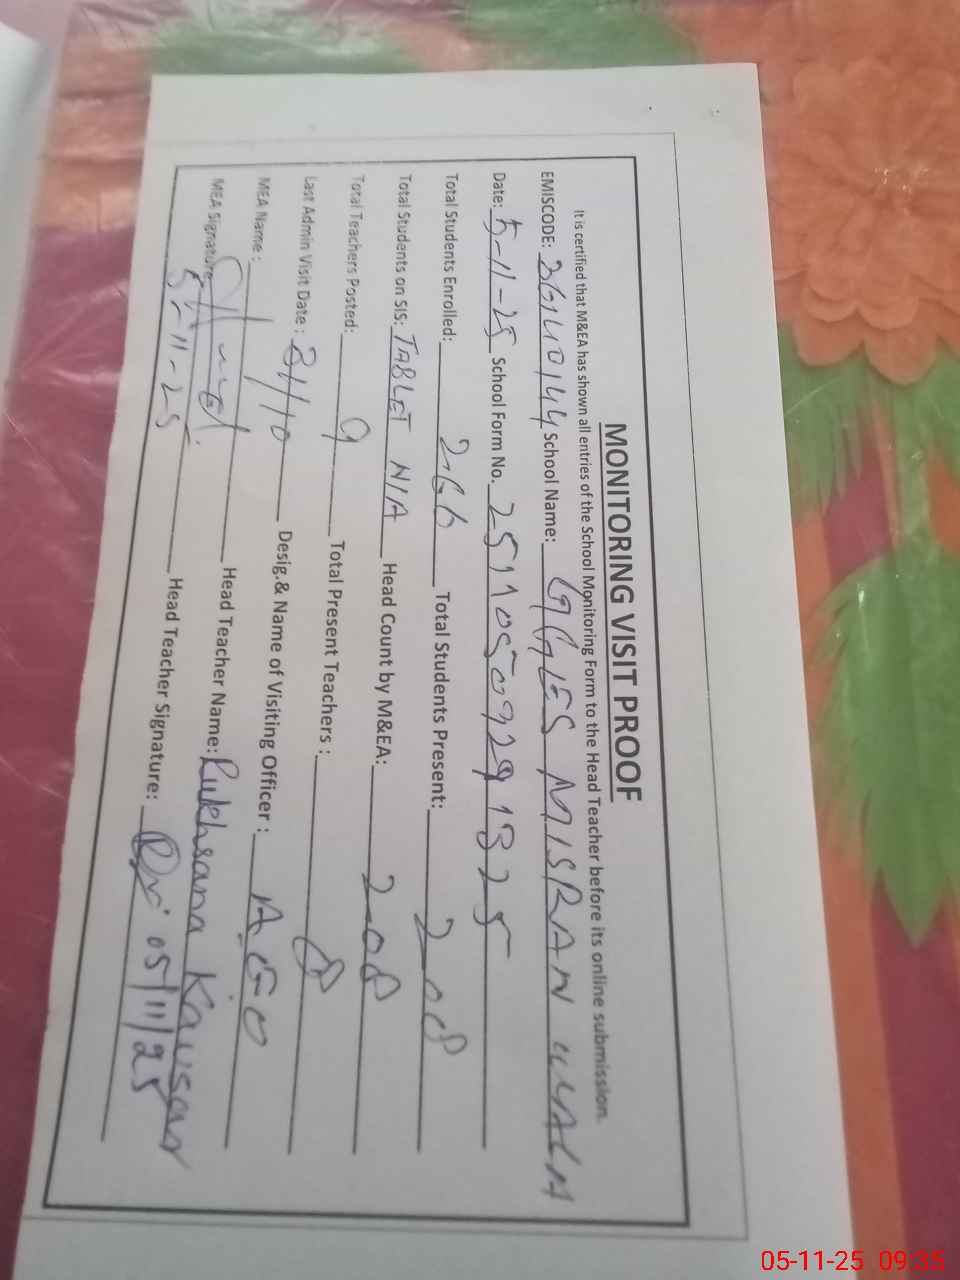 MONITORING VISIT PROOF
It is certified that M&EA has shown all entries of the School Monitoring Form to the Head Teacher before its online submission.
EMISCODE: 36140144 School Name: GGLES MISRAN WALA
Date: 5-11-25 School Form No. 25110509291325
Total Students Enrolled: 266 Total Students Present: 208
Total Students on SIS: TABLET N/A Head Count by M&EA: 208
Total Teachers Posted: 9 Total Present Teachers : 8
Last Admin Visit Date : 31/10 Desig.& Name of Visiting Officer : AEO
MEA Name : Head Teacher Name: Rukhsana Kausar
MEA Signature: 5-11-25 Head Teacher Signature: 05/11/25
05-11-25 09:35